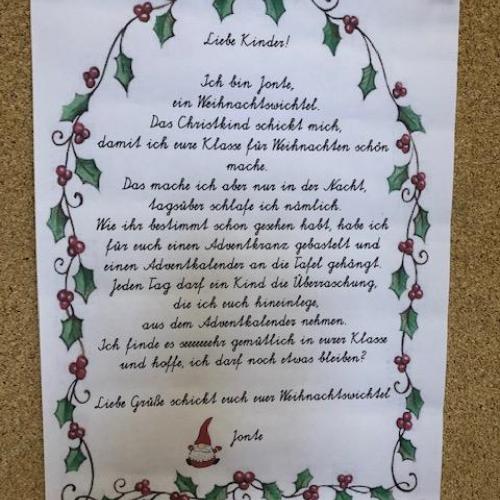 Liebe Kinder!
Ich bin Jonte,
ein Weihnachtswichtel.
Das Christkind schickt mich,
damit ich eure Klasse für Weihnachten schön
mache.
Das mache ich aber nur in der Nacht,
tagsüber schlafe ich nämlich.
Wie ihr bestimmt schon gesehen habt, habe ich
für euch einen Adventkranz gebastelt und
einen Adventkalender an die Tafel gehängt.
Jeden Tag darf ein Kind die Überraschung,
die ich euch hineinlege,
aus dem Adventkalender nehmen.
Ich finde es seeeeeehr gemütlich in eurer Klasse
und hoffe, ich darf noch etwas bleiben?
Liebe Grüße schickt euch euer Weihnachtswichtel
Jonte